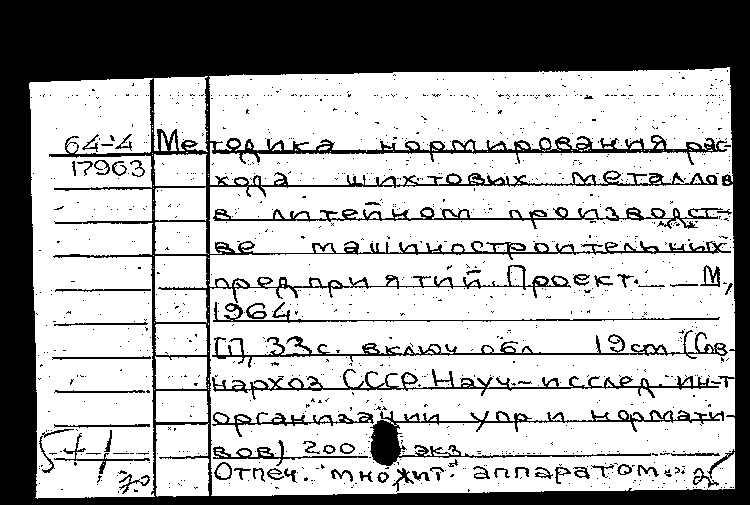 64-4 Методика нормирования рас-
17963 хода шихтовых металлов
в литейном производст-
ве машиностроительных
предприятий. Проект. М.,
1964.
[1], 33 с. включ. обл. 19 cm. (Сов-
нархоз СССР. Науч.-исслед. ин-т
организации упр и нормати-
вов) 200 экз.
54/ Отпеч. множит. аппаратом.